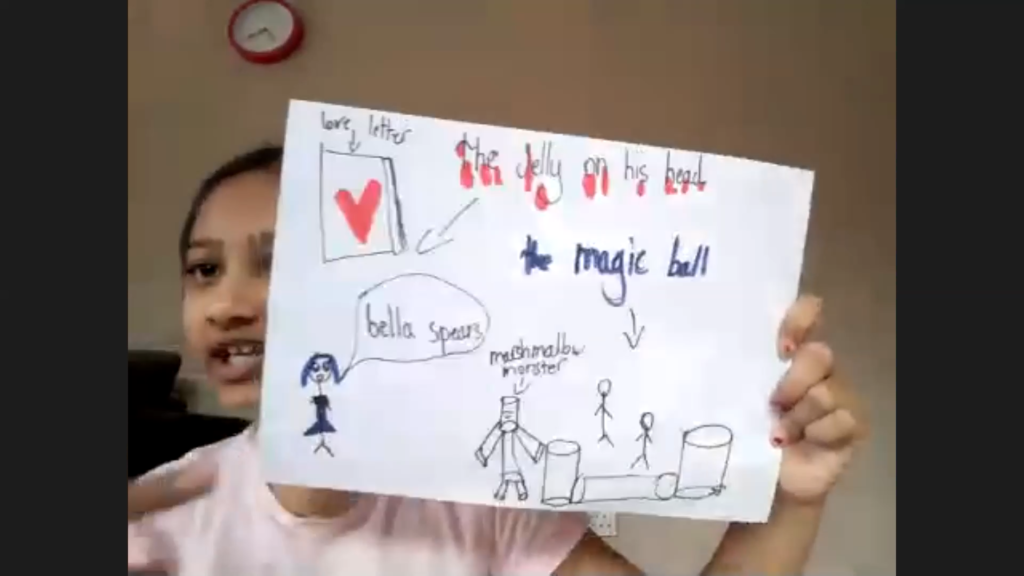 love letter
the Jelly on his head
the magic ball
bella spears
marshmallow
monster